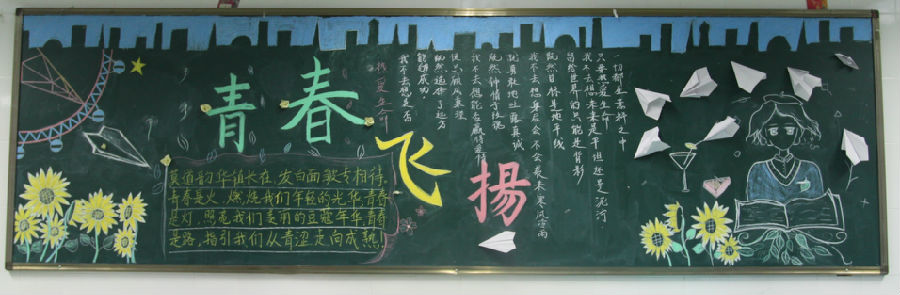 青春飞揚
莫道韵华镇长在,发白面皱专相待。
青春是火,燃烧我们年轻的光华青春
是灯,照亮我们美丽的豆蔻年华青春
是路,指引我们从青涩走向成熟!
热爱生命
我不去想是否
能够成功
既然选择了远方
便只顾风雨兼程
我不去想能否赢得爱情
既然钟情于玫瑰
就勇敢地吐露真诚
我不去想身后会不会袭来寒风冷雨
既然目标是地平线
留给世界的只能是背影
我不去想未来是平坦还是泥泞
只要热爱生命
一切都在意料之中